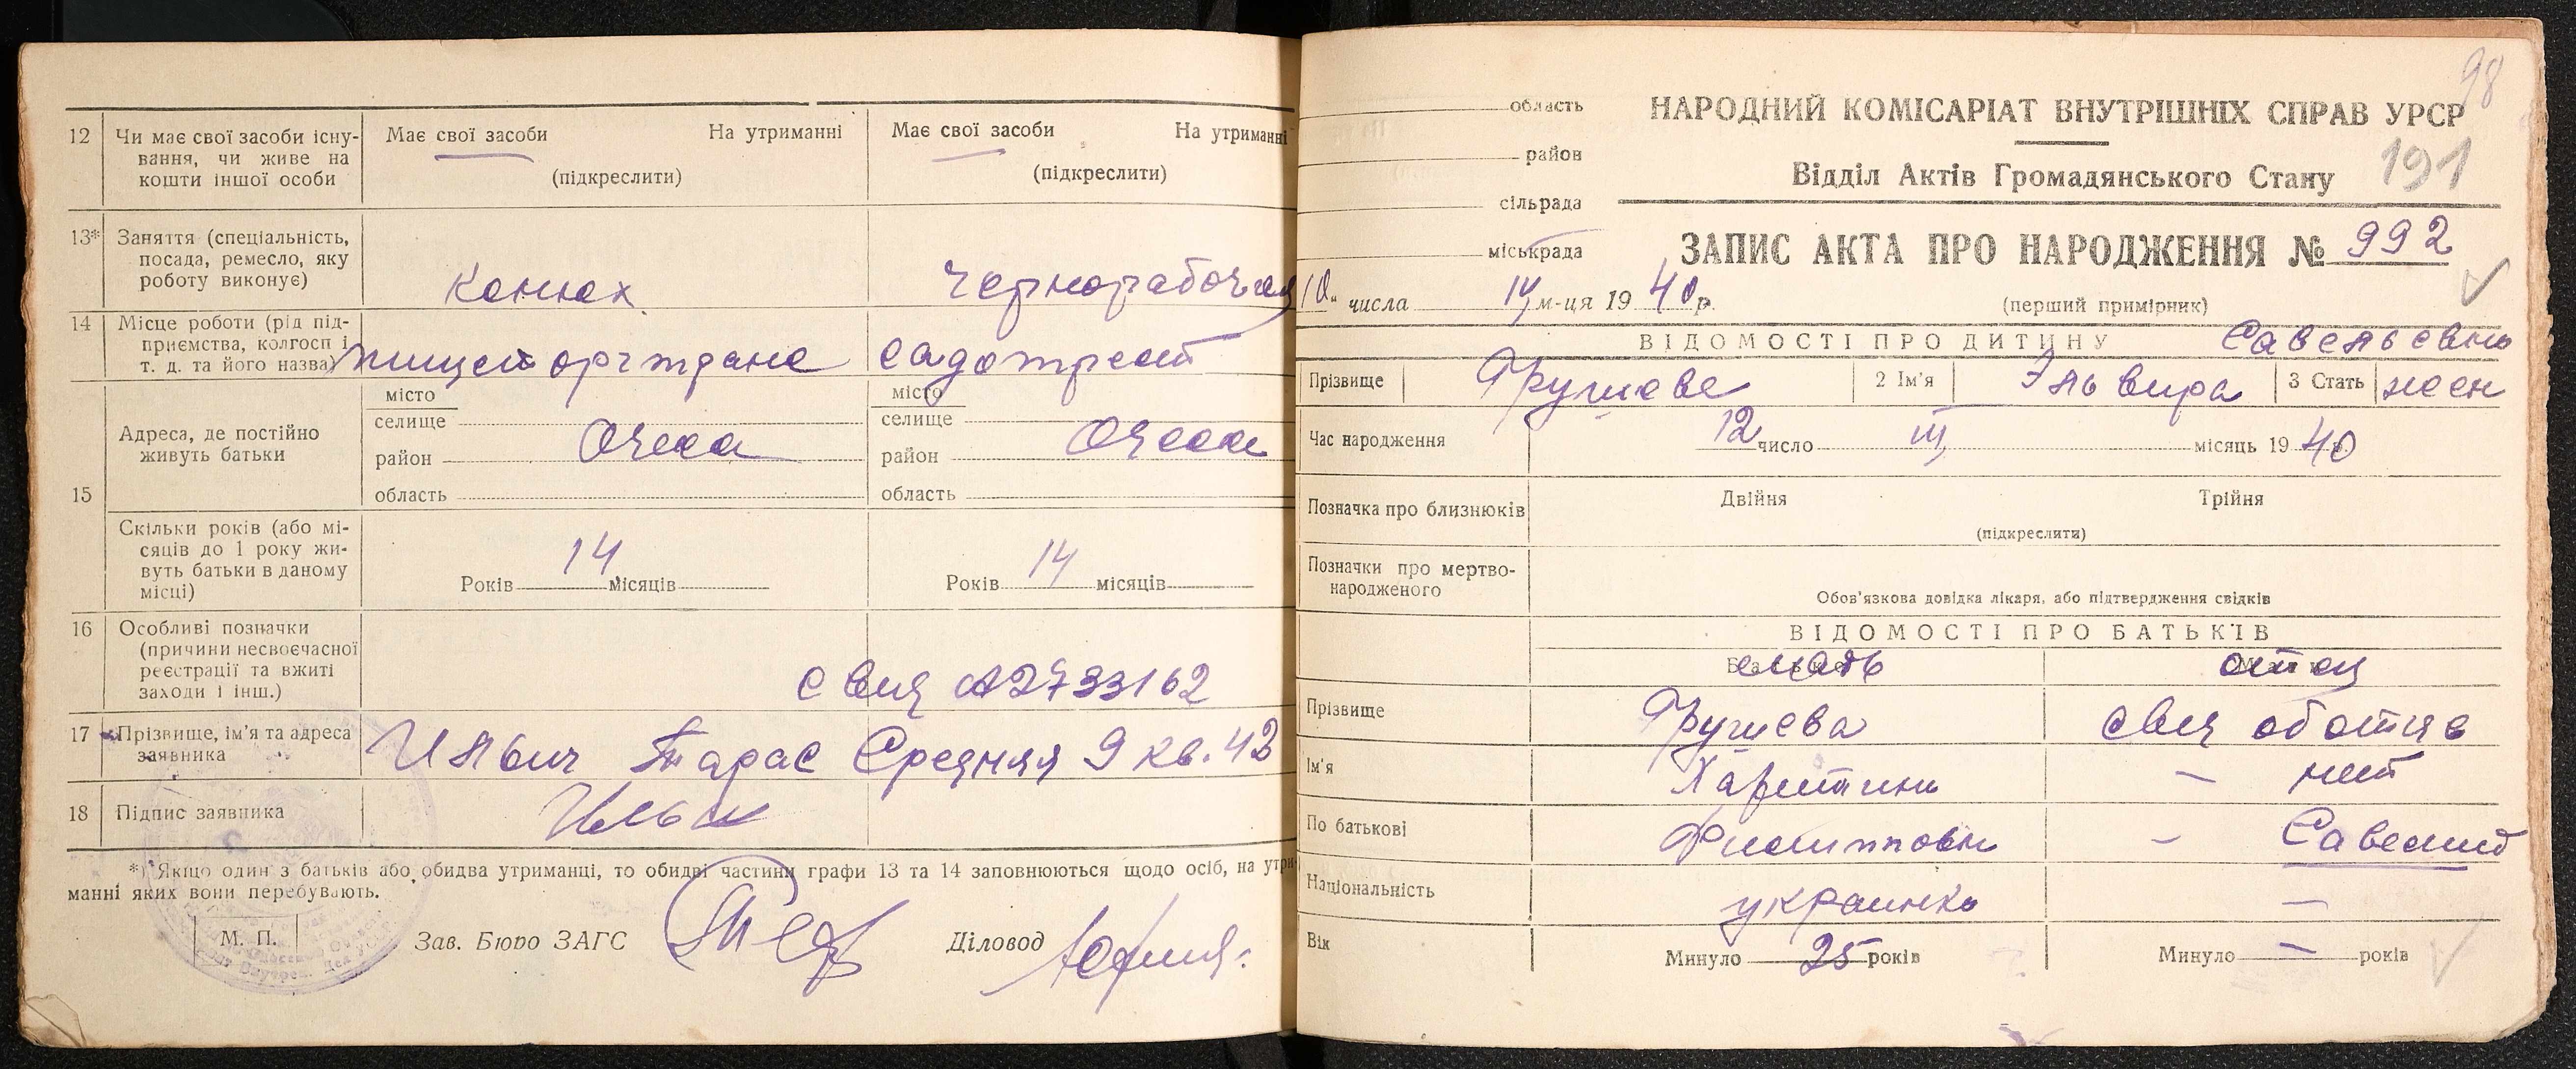 12 Чи має свої засоби існу-
вання, чи живе на
кошти іншої особи
Має свої засоби На утриманні
(підкреслити)
Має свої засоби На утриманні
(підкреслити)
13* Заняття (спеціальність,
посада, ремесло, яку
роботу виконує)
Конюх
Чернорабочая
14 Місце роботи (рід під-
приємства, колгосп і
т. д. та його назва)
садотрест
15 Адреса, де постійно
живуть батьки
місто
селище
район
область
Одесса
місто
селище
район
область
Одесса
Скільки років (або мі-
сяців до 1 року жи-
вуть батьки в даному
місці)
Років 14 місяців
Років 14 місяців
16 Особливі позначки
(причини несвоєчасної
реєстрації та вжиті
заходи і інш.)
2733162
17 Прізвище, ім'я та адреса
заявника
Ильич Тарас Средняя 9 кв. 42
18 Підпис заявника
*) Якщо один з батьків або обидва утриманці, то обидві частини графи 13 та 14 заповнюються щодо осіб, на утри-
манні яких вони перебувають.
М. П. Зав. Бюро ЗАГС Діловод
98
область
район
сільрада
міськрада
НАРОДНИЙ КОМІСАРІАТ ВНУТРІШНІХ СПРАВ УРСР
Відділ Актів Громадянського Стану 191
ЗАПИС АКТА ПРО НАРОДЖЕННЯ № 992
10 „ числа IV м-ця 19 40 р. (перший примірник)
ВІДОМОСТІ ПРО ДИТИНУ Савельевна
Прізвище 2 Ім'я Эльвира 3 Стать жен
Час народження 12 число III місяць 19 40 р.
Позначка про близнюків Двійня Трійня
(підкреслити)
Позначки про мертво-
народженого
Обов'язкова довідка лікаря, або підтвердження свідків
ВІДОМОСТІ ПРО БАТЬКІВ
мать отец
Прізвище свед об отце
Ім'я Харитина — нет
По батькові Филипповна — Савелий
Національність украинка —
Вік Минуло 25 років Минуло — років